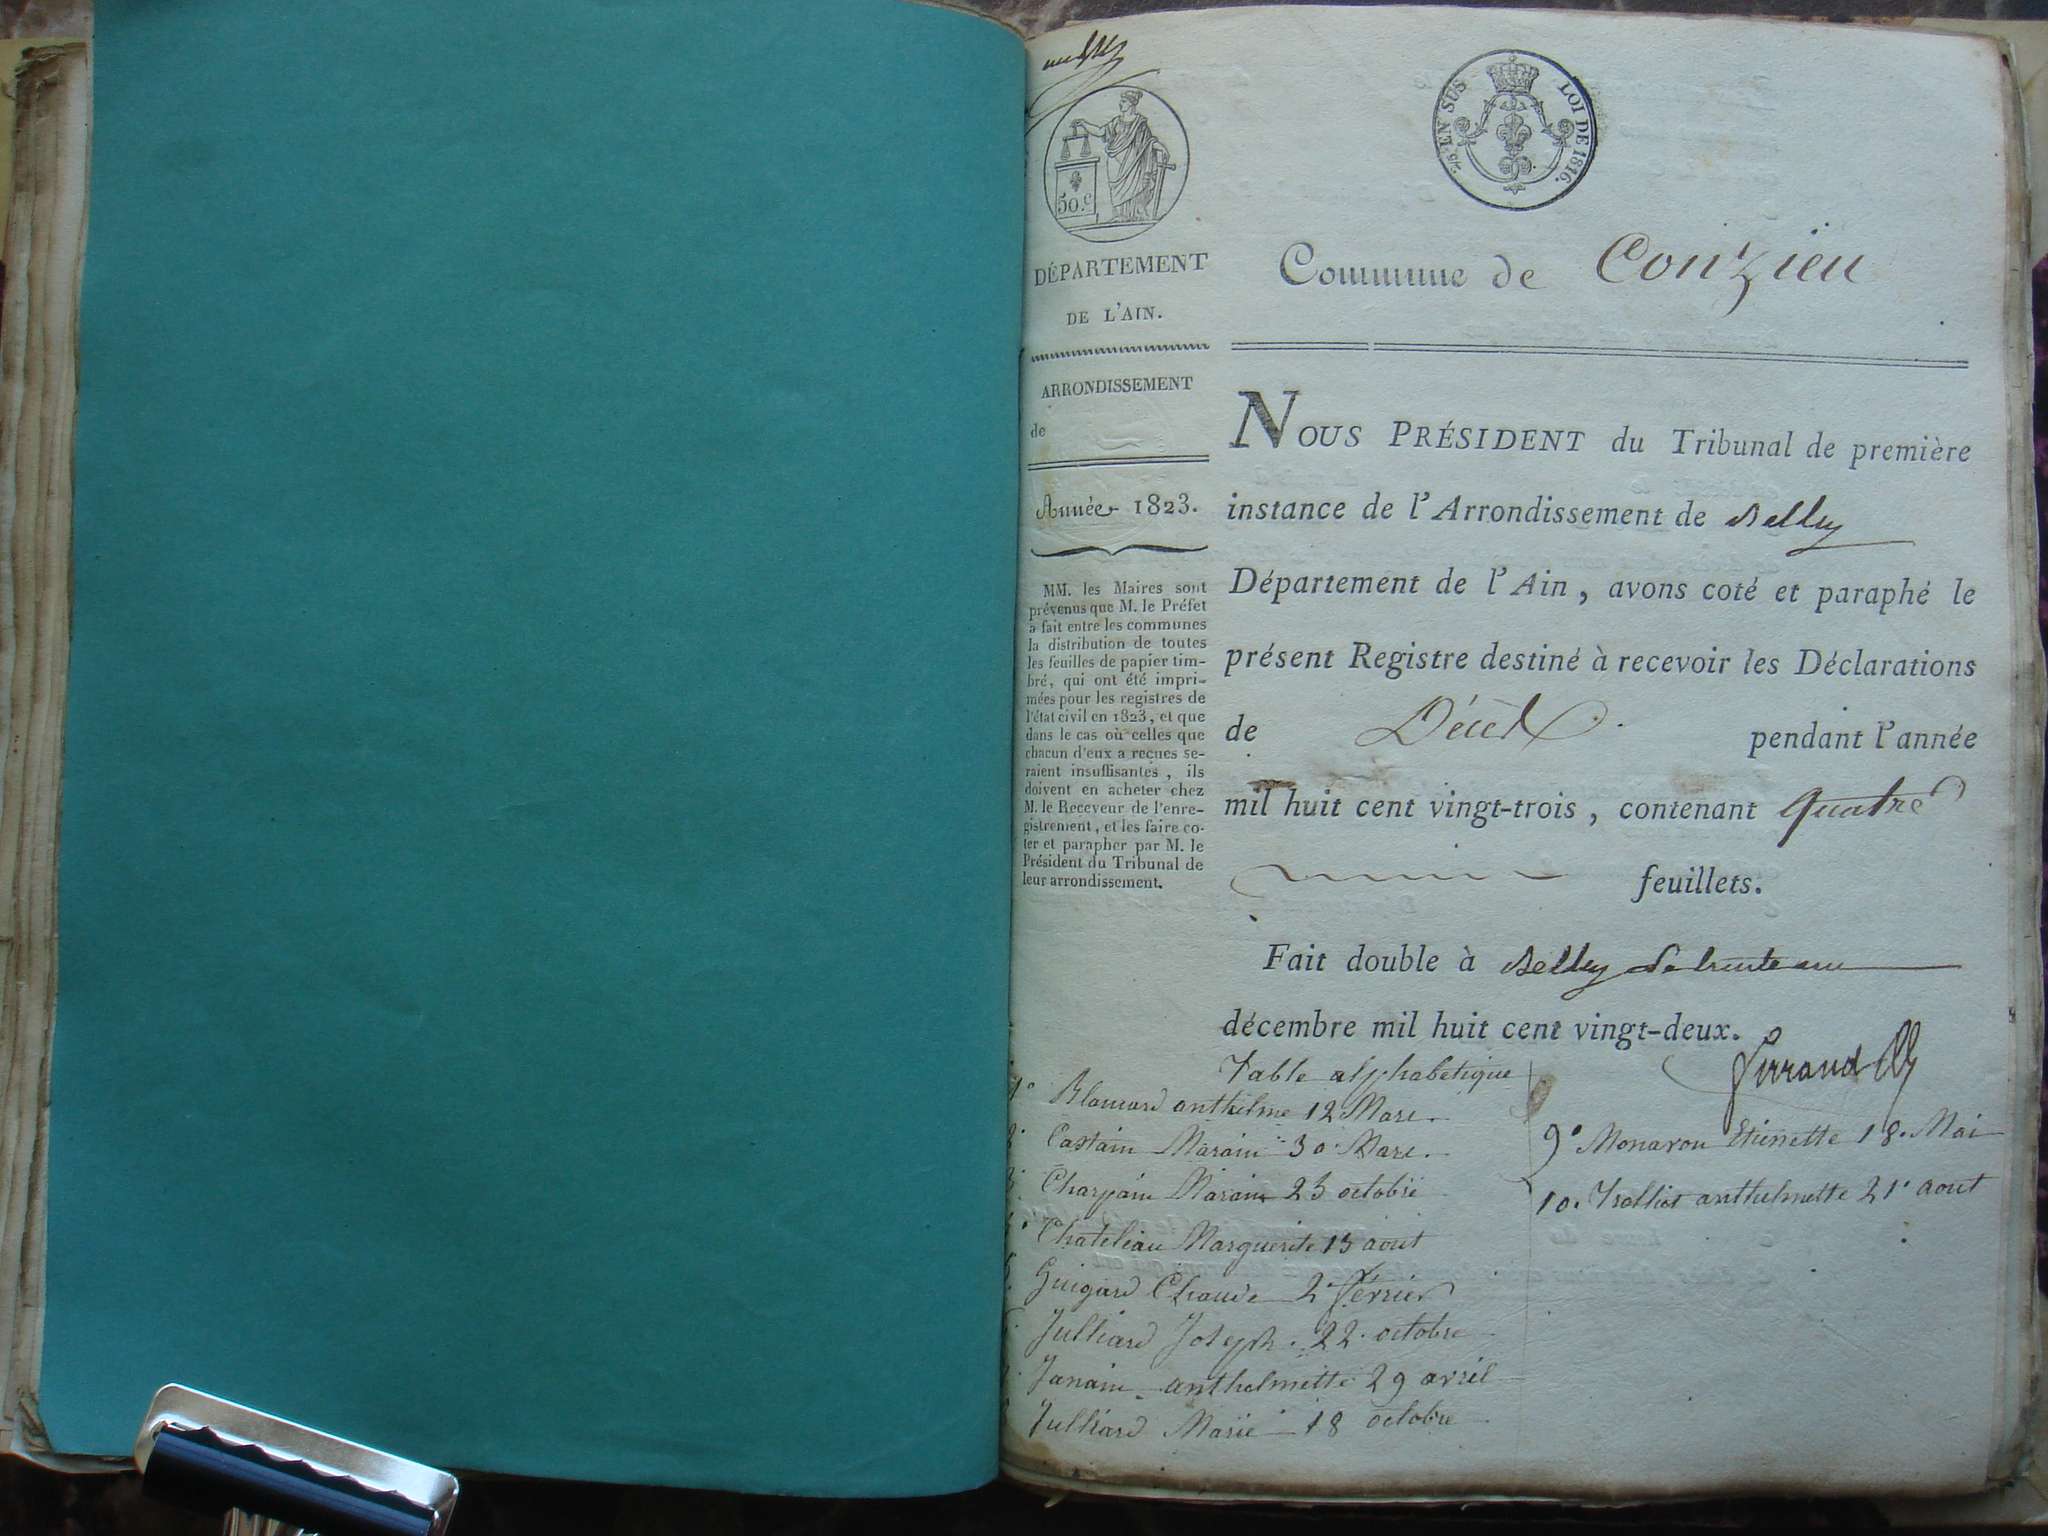 50.c
2/10 EN SUS LOI DE 1816.
DÉPARTEMENT
DE L'AIN.
ARRONDISSEMENT
de
Année 1823.
MM. les Maires sont
prévenus que M. le Préfet
a fait entre les communes
la distribution de toutes
les feuilles de papier tim-
bré, qui ont été impri-
mées pour les registres de
l'état civil en 1823, et que
dans le cas où celles que
chacun d'eux a reçues se-
raient insuffisantes, ils
doivent en acheter chez
M. le Receveur de l'enre-
gistrement, et les faire co-
ter et parapher par M. le
Président du Tribunal de
leur arrondissement.
Commune de Conzieu
NOUS PRÉSIDENT du Tribunal de première
instance de l'Arrondissement de Belley
Département de l'Ain, avons coté et paraphé le
présent Registre destiné à recevoir les Déclarations
de Décès pendant l'année
mil huit cent vingt-trois, contenant quatre
feuillets.
Fait double à Belley le trente un
décembre mil huit cent vingt-deux.
Table alphabetique
1° Blanard anthelme 12 Mars.
Marain 30 Mars.
Charpain Marain 23 octobre
Marguerite 13 aout
Guigard Claude 2 février
Julliard Joseph. 22. octobre
Janain anthelmette 29 avril
Julliard Marie 18 octobre
9° Monavon Etienette 18. Mai
10. Trolliet anthelmette 21 aout